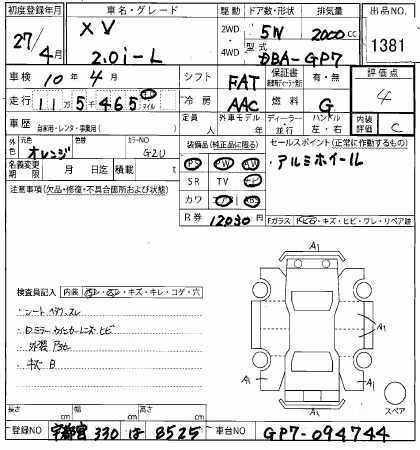 初度登録年月 車名・グレード 駆動 ドア数・形状 排気量 出品NO
27/4月 XV 2WD・4WD 5W 2000cc 1381
2.0i-L 型式 DBA-GP7
車検 10年4月 シフト FAT 保証書 有・無 評価点
走行 11万5千465 キロ マイル 冷房 AAC 燃料 G 4
車歴 自家用・レンタ・事業用( ) 定員 人 外車モデル ディーラー・並行 ハンドル 左・右 内装評価 C
外色 元色 オレンジ 色替 カラーNO G2U
装備品(純正品に限る)
セールスポイント(正常に作動するもの)
PS PW AW
・アルミホイール
名義変更期限 月 日迄 積載 t
SR TV ナビ
注意事項(欠品・修復・不具合箇所および状態)
カワ エアB ABS
R券 12030円
Fガラス トビ石・キズ・ヒビ・ワレ・リペア跡
A1
検査員記入 内装 ヨゴレ・スレ・キズ・キレ・コゲ・穴
・シート ヘタリ、スレ
・Dミラーウィンカーレンズ ヒビ
・外装
・キズ B
A1
A1
A1
A1
A1
スペア
長さ cm 幅 cm 高さ cm
登録NO 宇都宮 330 は 8525 車台NO GP7-094744